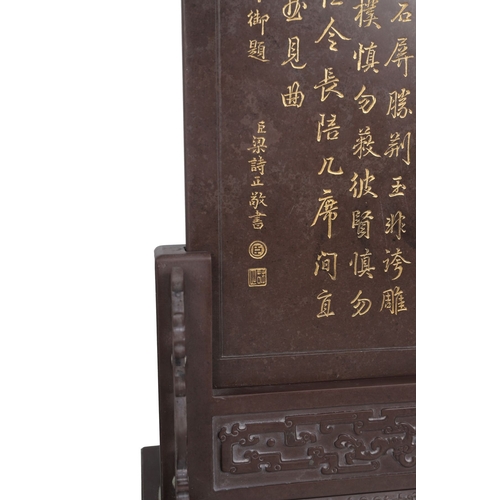 石屏勝荊玉非誇雕
樸慎勿蔽彼賢慎勿
令長陪几席間直
見曲
御題
臣梁詩正敬書
臣